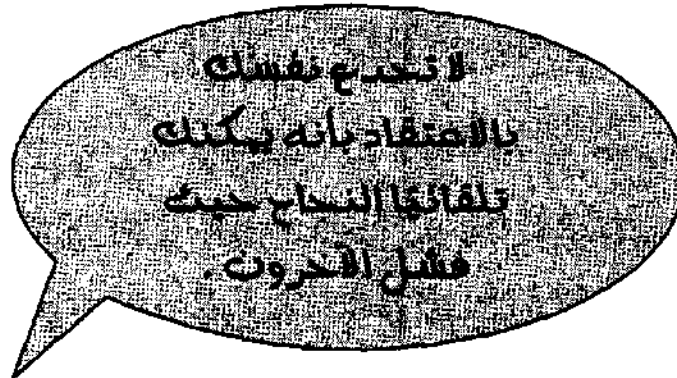 لا تخدع نفسك
بالاعتقاد بأنه يمكنك
تلقائيًا النجاح حيث
فشل الآخرون .